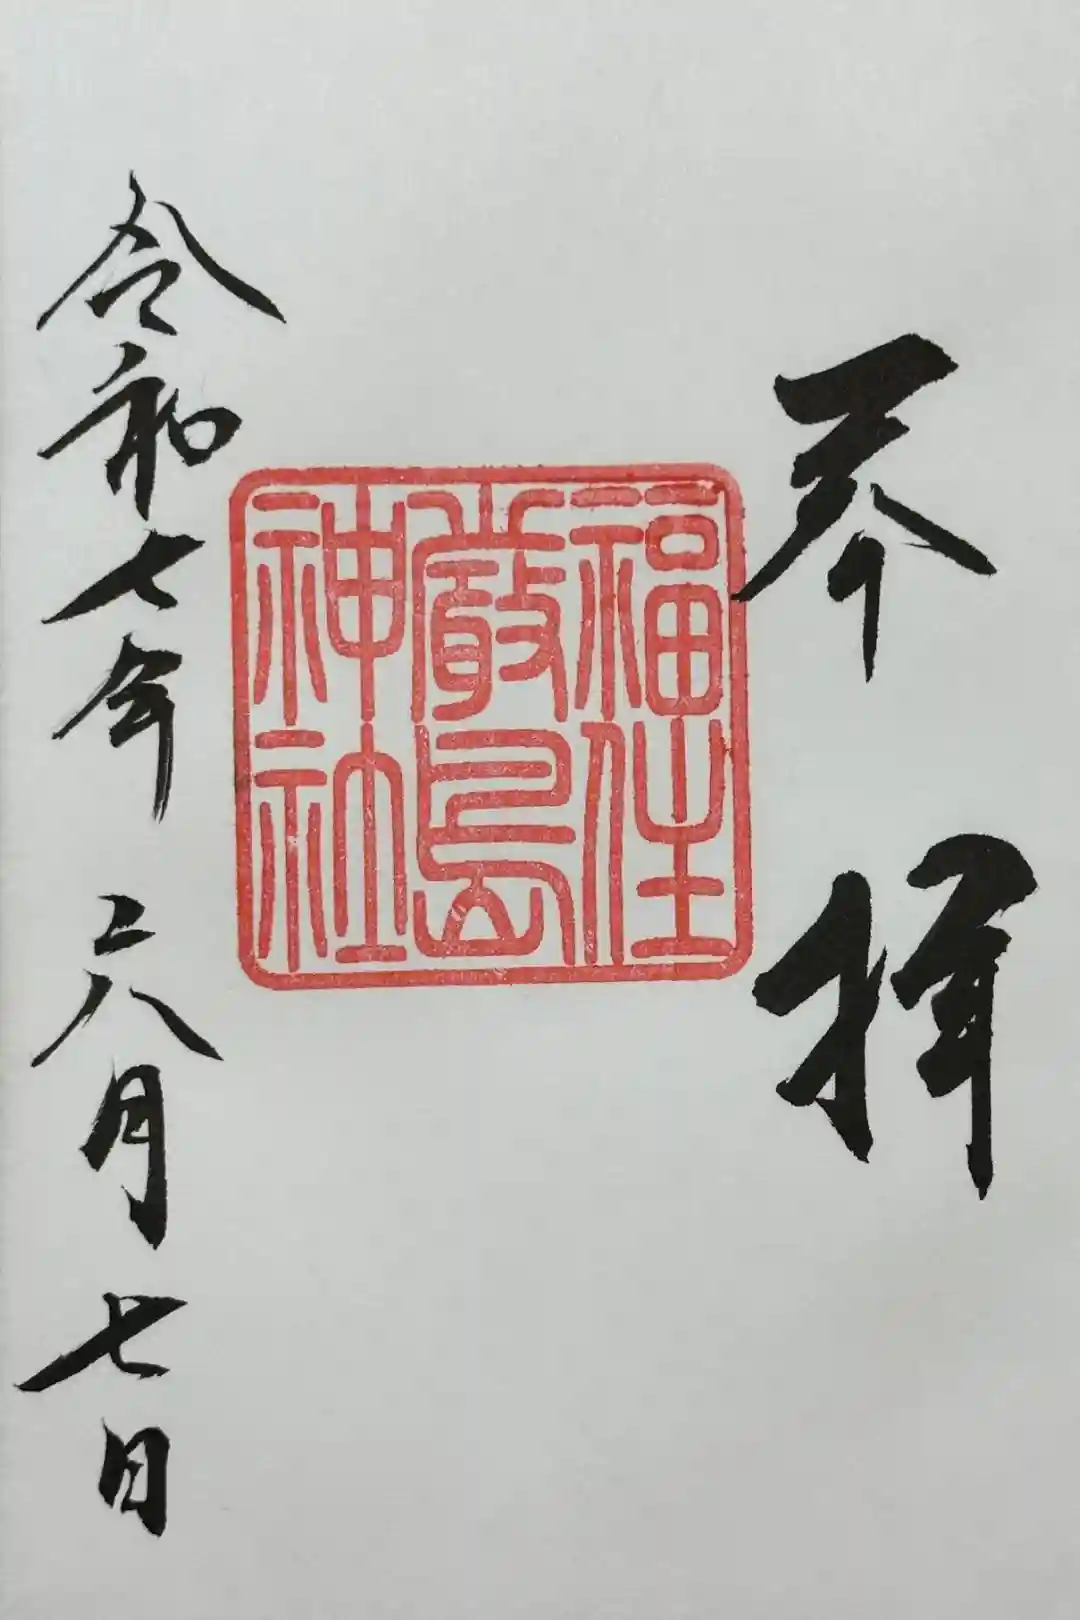 奉拝
福住
厳島
神社
令和七年 六月七日